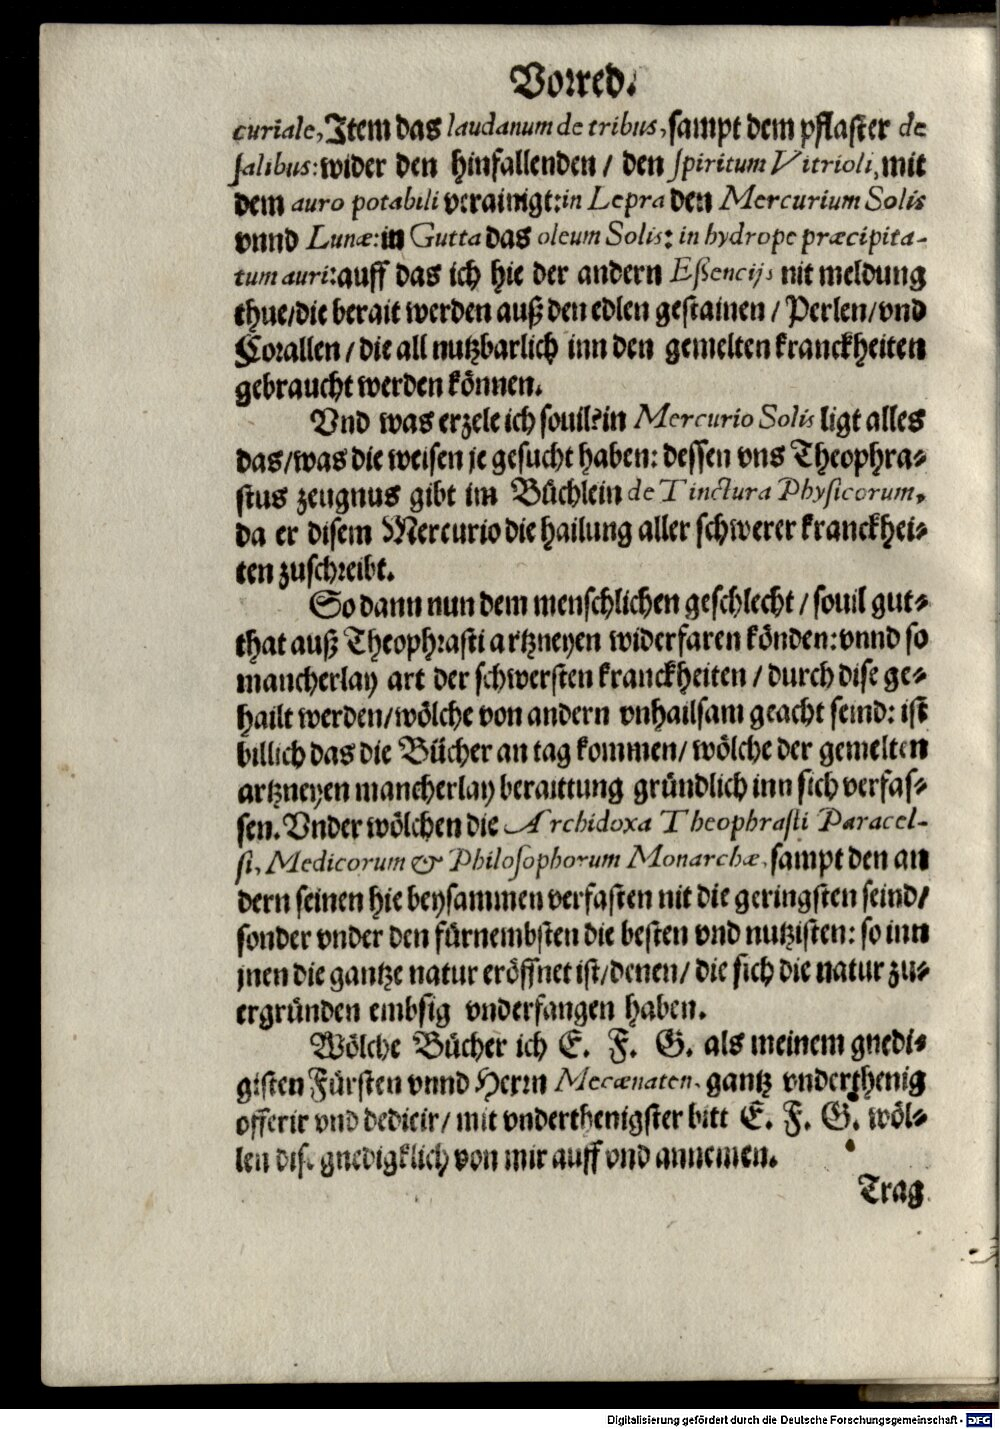 Vorred.
curiale, Item das laudanum de tribus, sampt dem pflaster de
salibus: wider den hinfallenden / den spiritum Vitrioli, mit
dem auro potabili verainigt: in Lepra den Mercurium Solis
vnnd Lunæ: in Gutta das oleum Solis: in hydrope præcipita-
tum auri: auff das ich hie der andern Eßencijs nit meldung
thue/die berait werden auß den edlen gestainen / Perlen/vnd
Corallen / die all nutzbarlich inn den gemelten kranckheiten
gebraucht werden können.
Vnd was erzele ich souil? in Mercurio Solis ligt alles
das/was die weisen je gesucht haben: dessen vns Theophra-
stus zeugnus gibt im Büchlein de Tinctura Physicorum,
da er disem Mercurio die hailung aller schwerer kranckhei-
ten zuschreibt.
So dann nun dem menschlichen geschlecht / souil gut-
that auß Theophrasti artzneyen widerfaren könden: vnnd so
mancherlay art der schwersten kranckheiten / durch dise ge-
hailt werden/wölche von andern vnhailsam geacht seind: ist
billich das die Bücher an tag kommen/ wölche der gemelten
artzneyen mancherlay beraittung gründlich inn sich verfas-
sen. Vnder wölchen die Archidoxa Theophrasti Paracel-
si, Medicorum & Philosophorum Monarchæ, sampt den an
dern seinen hie beysammen verfasten nit die geringsten seind/
sonder vnder den fürnembsten die besten vnd nutzisten: so inn
jnen die gantze natur eröffnet ist/denen/ die sich die natur zu-
ergründen embsig vnderfangen haben.
Wölche Bücher ich E. F. G. als meinem gnedi-
gisten Fürsten vnnd Herrn Mecænaten, gantz vnderthenig
offerir vnd dedicir/ mit vnderthenigster bitt E. F. G. wöl-
len dise gnedigklich von mir auff vnd annemen.
Trag
Digitalisierung gefördert durch die Deutsche Forschungsgemeinschaft - DFG